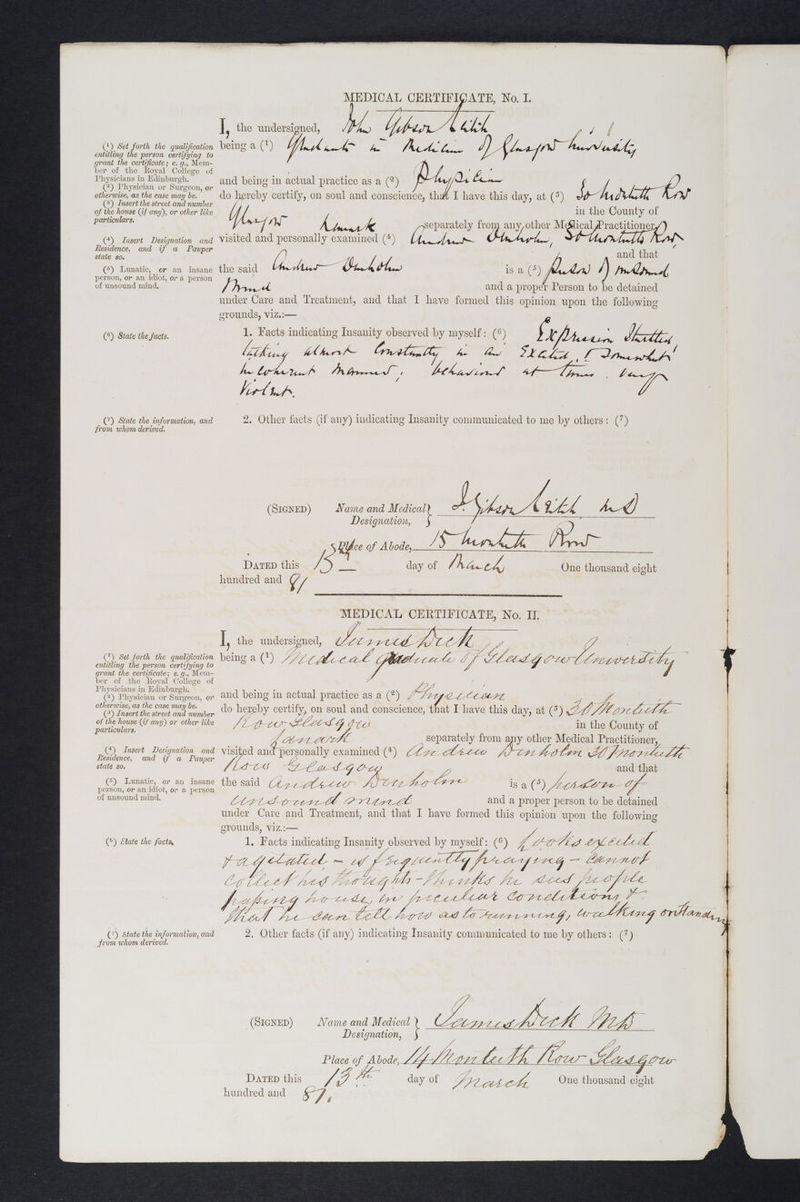 MEDICAL CERTIFICATE, No. I.
I, the undersigned, John Gibson Leitch
(1) Set forth the qualification entitling the person certifying to grant the certificate; e. g., Member of the Royal College of Physicians in Edinburgh.
being a (1) Graduate in Medicine of Glasgow University
(2) Physician or Surgeon, or otherwise, as the case may be.
and being in actual practice as a (2) Physician
(3) Insert the street and number of the house (if any), or other like particulars.
do hereby certify, on soul and conscience, that I have this day, at (3) 30 Monteith Row
Glasgow in the County of
Lanark separately from any other Medical Practitioner,
(4) Insert Designation and Residence, and if a Pauper state so.
visited and personally examined (4) Andrew Denholm, 30 Monteith Row
and that
(5) Lunatic, or an insane person, or an idiot, or a person of unsound mind.
the said Andrew Denholm is a (5) Person of unsound
Mind and a proper Person to be detained
under Care and Treatment, and that I have formed this opinion upon the following
grounds, viz.:—
(6) State the facts.
1. Facts indicating Insanity observed by myself: (6) Expression
talking almost constantly in an Excited, & Somewhat
incoherent manner; behaviour at times very
Violent.
(7) State the information, and from whom derived.
2. Other facts (if any) indicating Insanity communicated to me by others: (7)
(SIGNED) Name and Medical Designation, J. Gibson Leitch M.D
Place of Abode, 15 Monteith Row
DATED this 13th day of March One thousand eight
hundred and 81
MEDICAL CERTIFICATE, No. II.
I, the undersigned, James Dick
(1) Set forth the qualification entitling the person certifying to grant the certificate; e. g., Member of the Royal College of Physicians in Edinburgh.
being a (1) Medical Graduate of Glasgow University
(2) Physician or Surgeon, or otherwise, as the case may be.
and being in actual practice as a (2) Physician
(3) Insert the street and number of the house (if any), or other like particulars.
do hereby certify, on soul and conscience, that I have this day, at (3) 30 Monteith
Row Glasgow in the County of
Lanark separately from any other Medical Practitioner,
(4) Insert Designation and Residence, and if a Pauper state so.
visited and personally examined (4) Andrew Denholm 30 Monteith
Row Glasgow and that
(5) Lunatic, or an insane person, or an idiot, or a person of unsound mind.
the said Andrew Denholm is a (5) person of
unsound mind and a proper person to be detained
under Care and Treatment, and that I have formed this opinion upon the following
grounds, viz.:—
(6) State the facts.
1. Facts indicating Insanity observed by myself: (6) Looks excited
& agitated - is frequently praying - cannot
collect his thoughts - thinks he sees people
passing house, in peculiar conditions &
that he can tell how as to running, walking or standing
(7) State the information, and from whom derived.
2. Other facts (if any) indicating Insanity communicated to me by others: (7)
(SIGNED) Name and Medical Designation, James Dick MD
Place of Abode, 14 Monteith Row Glasgow
DATED this 13th day of March One thousand eight
hundred and 81.